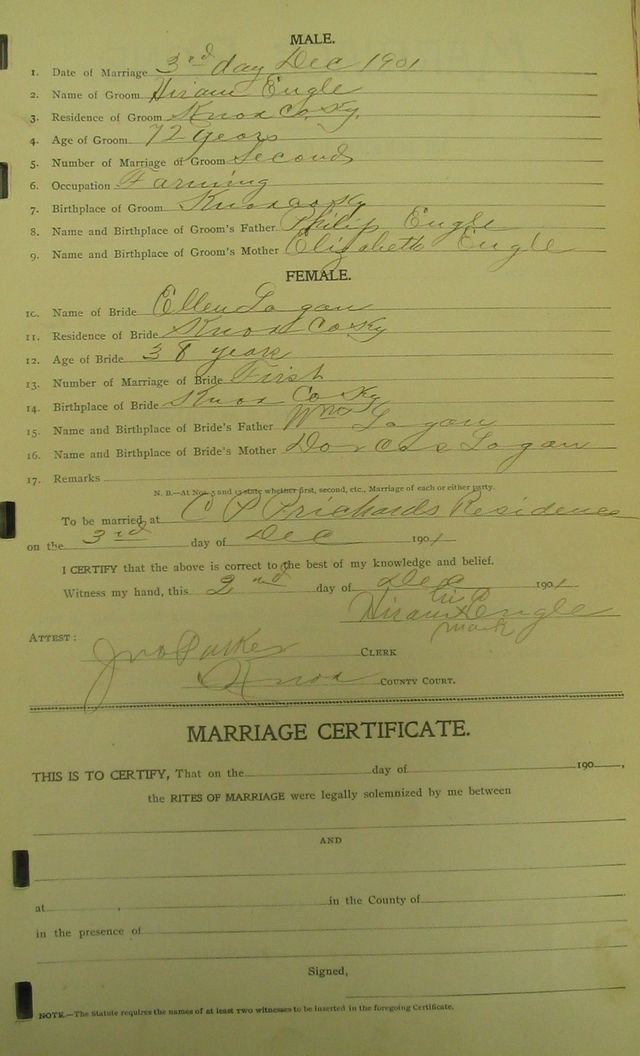 MALE.
1. Date of Marriage 3rd day Dec 1901
2. Name of Groom Hiram Engle
3. Residence of Groom Knox Co Ky.
4. Age of Groom 72 years
5. Number of Marriage of Groom Second
6. Occupation Farming
7. Birthplace of Groom Knox Co Ky
8. Name and Birthplace of Groom's Father Philip Engle
9. Name and Birthplace of Groom's Mother Elizabeth Engle
FEMALE.
10. Name of Bride Ellen Logan
11. Residence of Bride Knox Co Ky
12. Age of Bride 38 years
13. Number of Marriage of Bride First
14. Birthplace of Bride Knox Co Ky
15. Name and Birthplace of Bride's Father Wm Logan
16. Name and Birthplace of Bride's Mother Dorcas Logan
17. Remarks
N. B.—At Nos. 5 and 13 state whether first, second, etc., Marriage of each or either party.
To be married at C P Prichards Residence
on the 3rd day of Dec 1901
I CERTIFY that the above is correct to the best of my knowledge and belief.
Witness my hand, this 2nd day of Dec 1901
his
Hiram x Engle
mark
ATTEST:
Jno Parker CLERK
Knox COUNTY COURT.
MARRIAGE CERTIFICATE.
THIS IS TO CERTIFY, That on the day of 190 ,
the RITES OF MARRIAGE were legally solemnized by me between
AND
at in the County of
in the presence of
Signed,
NOTE.—The Statute requires the names of at least two witnesses to be inserted in the foregoing Certificate.